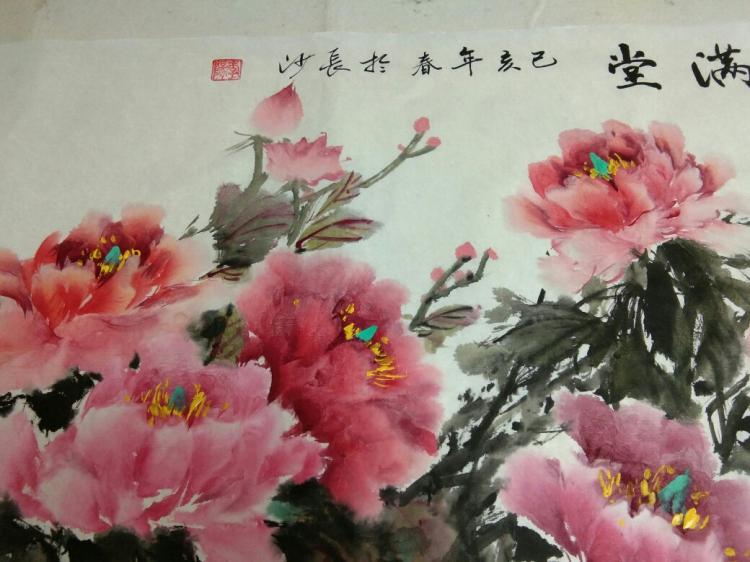 满堂
己亥年春於長沙